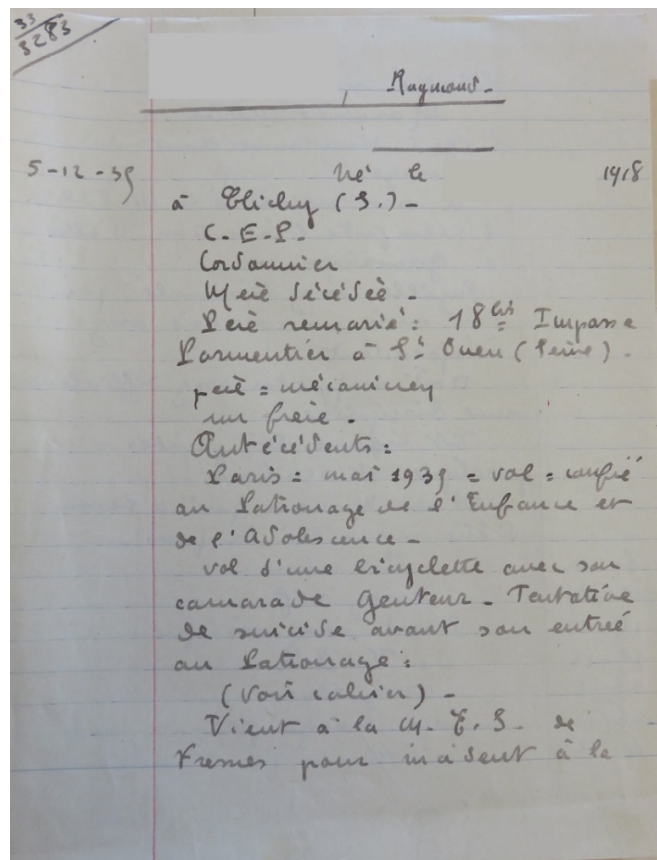 33
3283
, Raymond -
5-12-35 Né le 1918
à Clichy (S.) -
C. E. P. -
Cordonnier
Mère décédée -
Père remarié : 18 bis Impasse
Parmentier à St Ouen (Seine) -
père = mécanicien
un frère -
Antécédents :
Paris = mai 1935 = vol = confié
au Patronage de l'Enfance et
de l'Adolescence -
vol d'une bicyclette avec son
camarade - Tentative
de suicide avant son entrée
au Patronage :
(voir cahier) -
Vient à la M. E. S. de
Fresnes pour incident à la